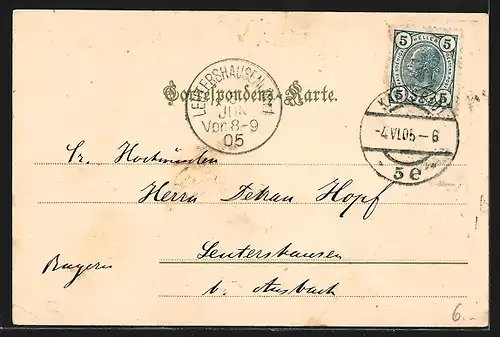 5 HELLER 5
5 5
LEUTERSHAUSEN
JUN
Vor. 8-9
05
Correspondenz-Karte.
-4 VI.05-6
5e
Sr. Hochwürden
Herrn Dekan Hopf
Leutershausen
Bayern
b. Ansbach
6.-